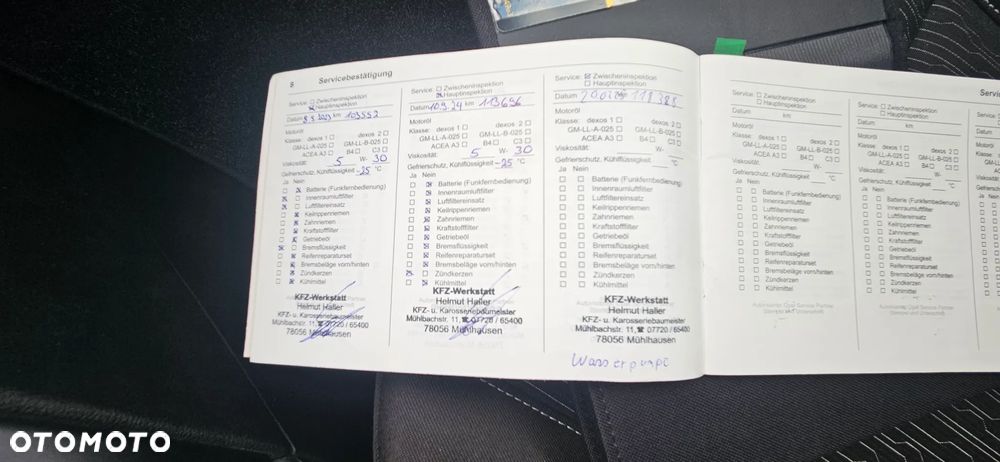 8 Servicebestätigung
Service: ☐ Zwischeninspektion
☒ Hauptinspektion
Datum 8.5.2023 km 103552
Motoröl
Klasse: dexos 1 ☐ dexos 2 ☐
GM-LL-A-025 ☐ GM-LL-B-025 ☐
ACEA A3 ☐ B4 ☐ C3 ☐
Viskosität: 5 W- 30
Gefrierschutz, Kühlflüssigkeit -25 °C
Ja Nein
Batterie (Funkfernbedienung)
Innenraumluftfilter
Luftfiltereinsatz
Keilrippenriemen
Zahnriemen
Kraftstofffilter
Getriebeöl
Bremsflüssigkeit
Reifenreparaturset
Bremsbeläge vorn/hinten
Zündkerzen
Kühlmittel
KFZ-Werkstatt
Helmut Haller
KFZ- u. Karosseriebaumeister
Mühlbachstr. 11, ☎ 07720 / 65400
78056 Mühlhausen
Service: ☐ Zwischeninspektion
☒ Hauptinspektion
Datum 10.9.24 km 113696
Motoröl
Klasse: dexos 1 ☐ dexos 2 ☐
GM-LL-A-025 ☐ GM-LL-B-025 ☐
ACEA A3 ☐ B4 ☐ C3 ☐
Viskosität: 5 W- 30
Gefrierschutz, Kühlflüssigkeit -25 °C
Ja Nein
Batterie (Funkfernbedienung)
Innenraumluftfilter
Luftfiltereinsatz
Keilrippenriemen
Zahnriemen
Kraftstofffilter
Getriebeöl
Bremsflüssigkeit
Reifenreparaturset
Bremsbeläge vorn/hinten
Zündkerzen
Kühlmittel
KFZ-Werkstatt
Helmut Haller
KFZ- u. Karosseriebaumeister
Mühlbachstr. 11, ☎ 07720 / 65400
78056 Mühlhausen
Service: ☒ Zwischeninspektion
☐ Hauptinspektion
Datum km 118328
Motoröl
Klasse: dexos 1 ☐ dexos 2 ☐
GM-LL-A-025 ☐ GM-LL-B-025 ☐
ACEA A3 ☐ B4 ☐ C3 ☐
Viskosität: W-
Gefrierschutz, Kühlflüssigkeit °C
Ja Nein
Batterie (Funkfernbedienung)
Innenraumluftfilter
Luftfiltereinsatz
Keilrippenriemen
Zahnriemen
Kraftstofffilter
Getriebeöl
Bremsflüssigkeit
Reifenreparaturset
Bremsbeläge vorn/hinten
Zündkerzen
Kühlmittel
KFZ-Werkstatt
Helmut Haller
KFZ- u. Karosseriebaumeister
Mühlbachstr. 11, ☎ 07720 / 65400
78056 Mühlhausen
Wasserpumpe
Service: ☐ Zwischeninspektion
☐ Hauptinspektion
Datum km
Motoröl
Klasse: dexos 1 ☐ dexos 2 ☐
GM-LL-A-025 ☐ GM-LL-B-025 ☐
ACEA A3 ☐ B4 ☐ C3 ☐
Viskosität: W-
Gefrierschutz, Kühlflüssigkeit °C
Ja Nein
Batterie (Funkfernbedienung)
Innenraumluftfilter
Luftfiltereinsatz
Keilrippenriemen
Zahnriemen
Kraftstofffilter
Getriebeöl
Bremsflüssigkeit
Reifenreparaturset
Bremsbeläge vorn/hinten
Zündkerzen
Kühlmittel
Autorisierter Opel Service Partner
Stempel und Unterschrift
Service: ☐ Zwischeninspektion
☐ Hauptinspektion
Datum km
Motoröl
Klasse: dexos 1 ☐ dexos 2 ☐
GM-LL-A-025 ☐ GM-LL-B-025
ACEA A3 ☐ B4 ☐ C3
Viskosität: W-
Gefrierschutz, Kühlflüssigkeit °C
Ja Nein
Batterie (Funkfernbedienung)
Innenraumluftfilter
Luftfiltereinsatz
Keilrippenriemen
Zahnriemen
Kraftstofffilter
Getriebeöl
Bremsflüssigkeit
Reifenreparaturset
Bremsbeläge vorn/hinten
Zündkerzen
Kühlmittel
Autorisierter Opel Service Partner
Stempel und Unterschrift
OTOMOTO